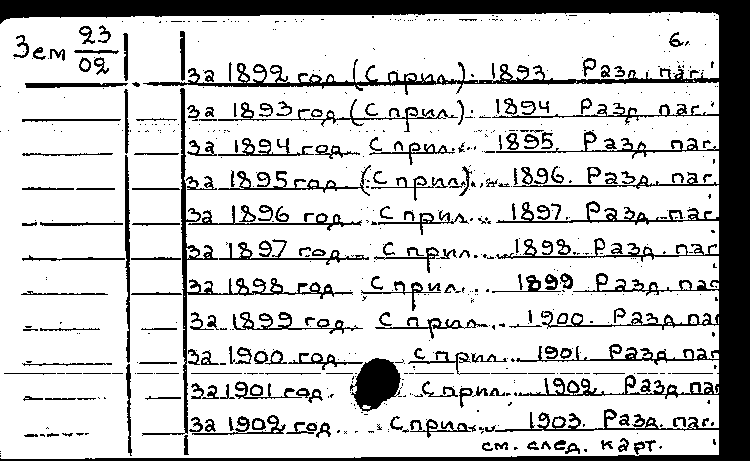 6.
Зем 23
02
за 1892 год (С прил.). 1893. Разд. паг.
за 1893 год (С прил.). 1894. Разд. паг.
за 1894 год С прил... 1895. Разд. паг.
за 1895 год (С прил)... 1896. Разд. паг.
за 1896 год С прил... 1897. Разд. паг.
за 1897 год С прил... 1898. Разд. паг
за 1898 год С прил... 1899 Разд. паг
за 1899 год. С прил... 1900. Разд. паг
за 1900 год С прил... 1901. Разд. паг
за 1901 год. С прил... 1902. Разд. паг
за 1902 год. С прил... 1903. Разд. паг.
см. след. карт.